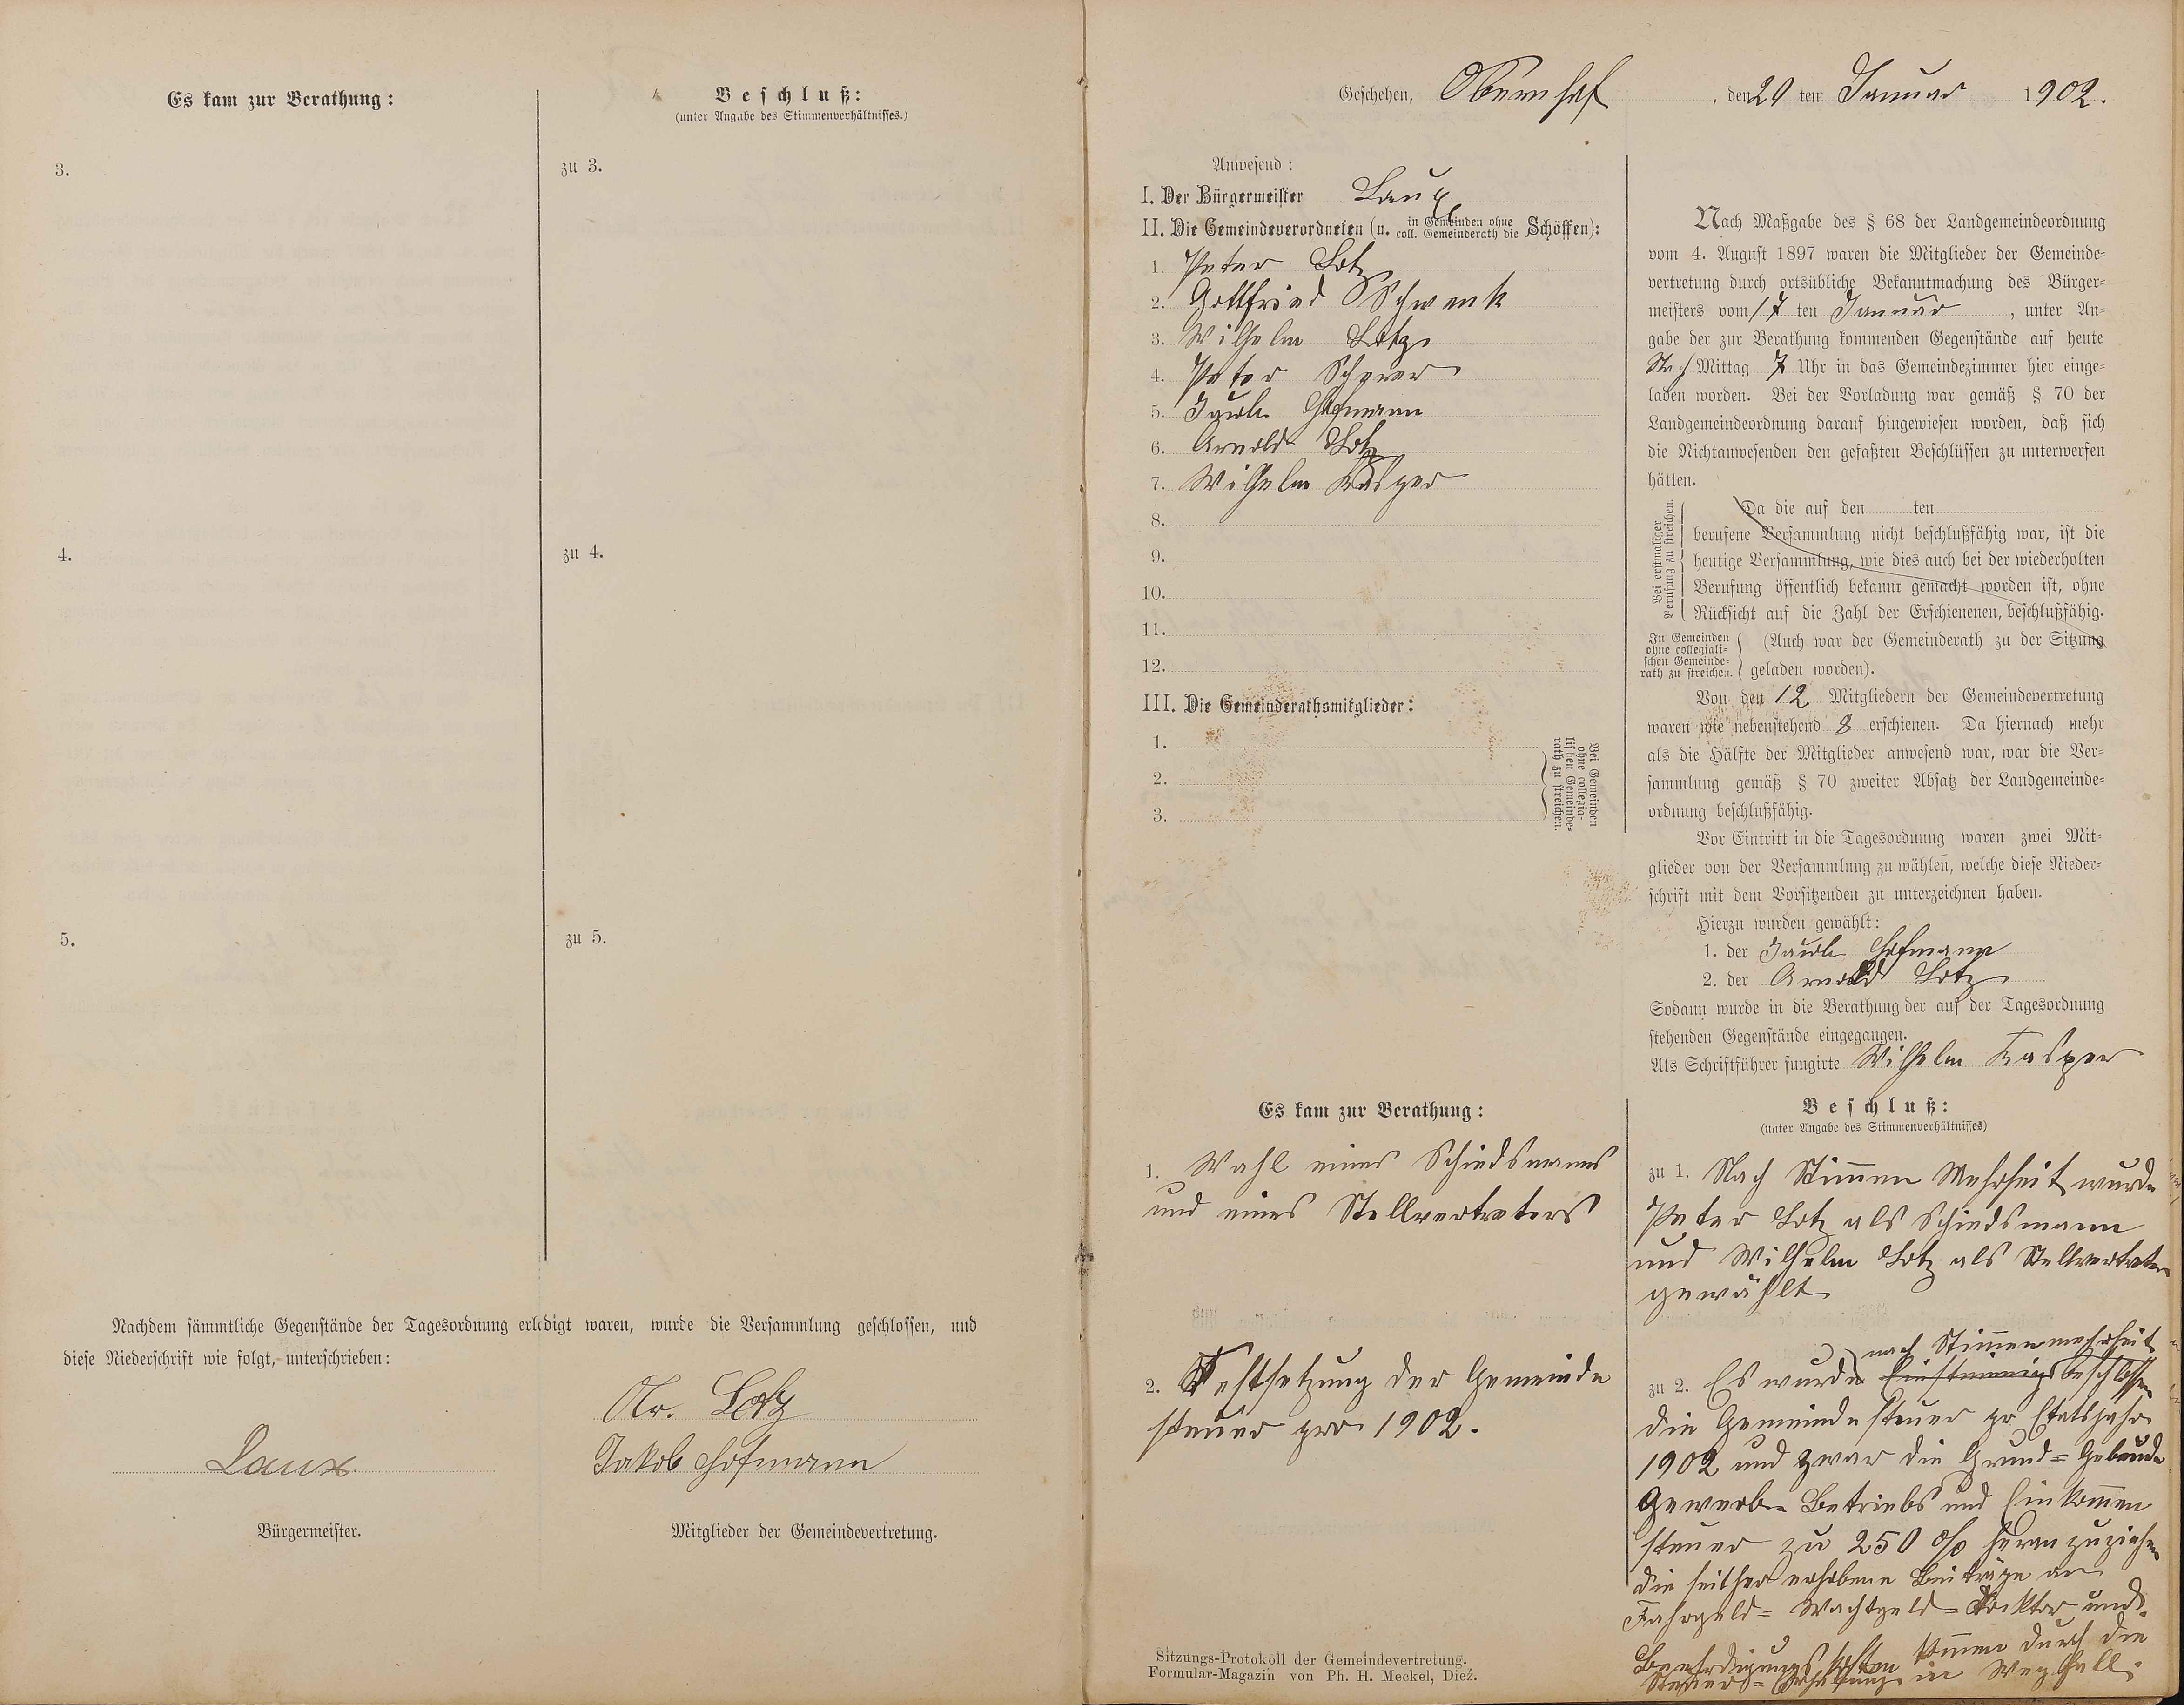 Es kam zur Berathung:
Beschluß:
(unter Angabe des Stimmenverhältnisses.)
3.
zu 3.
4.
zu 4.
5.
zu 5.
Nachdem sämmtliche Gegenstände der Tagesordnung erledigt waren, wurde die Versammlung geschlossen, und
diese Niederschrift wie folgt, unterschrieben:
Ar. Lotz
Laux
Jakob Hofmann
Bürgermeister.
Mitglieder der Gemeindevertretung.
Geschehen, Obernhof, den 20 ten Januar 1902.
Anwesend:
I. Der Bürgermeister Laux
II. Die Gemeindeverordneten (u. in Gemeinden ohne coll. Gemeinderath die Schöffen):
1. Peter Lotz
2. Gottfried Schwenk
3. Wilhelm Lotz
4. Peter Scherer
5. Jakob Hofmann
6. Arnold Lotz
7. Wilhelm Kasper
8.
9.
10.
11.
12.
III. Die Gemeinderathsmitglieder:
1.
2.
3.
Bei Gemeinden
ohne collegia-
lischen Gemeinde-
rath zu streichen.
Nach Maßgabe des § 68 der Landgemeindeordnung
vom 4. August 1897 waren die Mitglieder der Gemeinde-
vertretung durch ortsübliche Bekanntmachung des Bürger-
meisters vom 17 ten Januar, unter An-
gabe der zur Berathung kommenden Gegenstände auf heute
Nach Mittag 7 Uhr in das Gemeindezimmer hier einge-
laden worden. Bei der Vorladung war gemäß § 70 der
Landgemeindeordnung darauf hingewiesen worden, daß sich
die Nichtanwesenden den gefaßten Beschlüssen zu unterwerfen
hätten.
Bei erstmaliger
Berufung zu streichen.
Da die auf den ten
berufene Versammlung nicht beschlußfähig war, ist die
heutige Versammlung, wie dies auch bei der wiederholten
Berufung öffentlich bekannt gemacht worden ist, ohne
Rücksicht auf die Zahl der Erschienenen, beschlußfähig.
In Gemeinden
ohne collegiali-
schen Gemeinde-
rath zu streichen.
(Auch war der Gemeinderath zu der Sitzung
geladen worden).
Von den 12 Mitgliedern der Gemeindevertretung
waren wie nebenstehend 8 erschienen. Da hiernach mehr
als die Hälfte der Mitglieder anwesend war, war die Ver-
sammlung gemäß § 70 zweiter Absatz der Landgemeinde-
ordnung beschlußfähig.
Vor Eintritt in die Tagesordnung waren zwei Mit-
glieder von der Versammlung zu wählen, welche diese Nieder-
schrift mit dem Vorsitzenden zu unterzeichnen haben.
Hierzu wurden gewählt:
1. der Jakob Hofmann
2. der Arnold Lotz
Sodann wurde in die Berathung der auf der Tagesordnung
stehenden Gegenstände eingegangen.
Als Schriftführer fungirte Wilhelm Kasper
Es kam zur Berathung:
1. Wahl eines Schiedsmanns
und eines Stellvertreters
2. Festsetzung der Gemeinde
steuer pro 1902.
Beschluß:
(unter Angabe des Stimmenverhältnisses)
zu 1. Nach Stimmen Mehrheit wurde
Peter Lotz als Schiedsmann
und Wilhelm Lotz als Stellvertreter
gewählt
nach Stimmenmehrheit
zu 2. Es wurde Einstimmig beschlossen
die Gemeindesteuer pr Etatsjahr
1902 und zwar die Grund= Gebäude
Gewerbe Betriebs und Einkommen
steuer zu 250 % heran zuziehen
die seither erhobene Beiträge an
Fahrgeld= Wachtgeld= Docktor und
Beerdigungs kosten kommen durch die
Steuer= Erhöhung in Wegfall.
Sitzungs-Protokoll der Gemeindevertretung.
Formular-Magazin von Ph. H. Meckel, Diez.